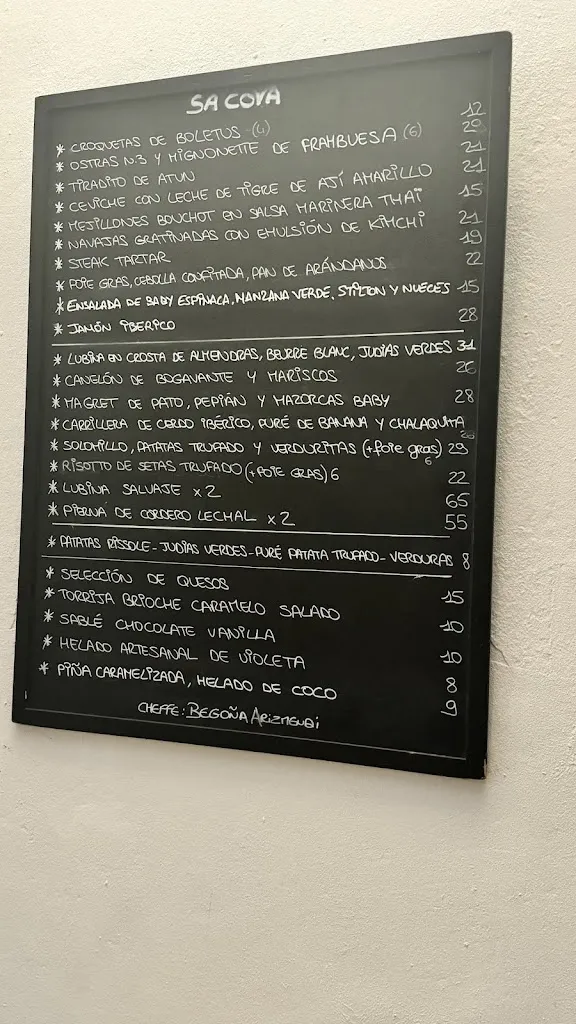 SA COVA
* CROQUETAS DE BOLETUS (4) 12
* OSTRAS N.3 Y MIGNONETTE DE FRAMBUESA (6) 29
* TIRADITO DE ATUN 21
* CEVICHE CON LECHE DE TIGRE DE AJÍ AMARILLO 21
* MEJILLONES BOUCHOT EN SALSA MARINERA THAÏ 15
* NAVAJAS GRATINADAS CON EMULSIÓN DE KIMCHI 21
* STEAK TARTAR 19
* FOIE GRAS, CEBOLLA CONFITADA, PAN DE ARÁNDANOS 22
* ENSALADA DE BABY ESPINACA, MANZANA VERDE, STILTON Y NUECES 15
* JAMÓN IBERICO 28
* LUBINA EN CROSTA DE ALMENDRAS, BEURRE BLANC, JUDIAS VERDES 31
* CANELÓN DE BOGAVANTE Y MARISCOS 26
* MAGRET DE PATO, PEPIÁN Y MAZORCAS BABY 28
* CARRILLERA DE CERDO IBÉRICO, PURÉ DE BANANA Y CHALAQUITA
* SOLOMILLO, PATATAS TRUFADO Y VERDURITAS (+foie gras) 29
6
* RISOTTO DE SETAS TRUFADO (+FOIE GRAS) 6 22
* LUBINA SALVAJE x2 65
* PIERNA DE CORDERO LECHAL x2 55
* PATATAS RISSOLE - JUDIAS VERDES - PURÉ PATATA TRUFADO - VERDURAS 8
* SELECCIÓN DE QUESOS 15
* TORRIJA BRIOCHE CARAMELO SALADO 10
* SABLÉ CHOCOLATE VANILLA 10
* HELADO ARTESANAL DE VIOLETA 8
* PIÑA CARAMELIZADA, HELADO DE COCO 9
CHEFFE: BEGOÑA ARIZMENDI